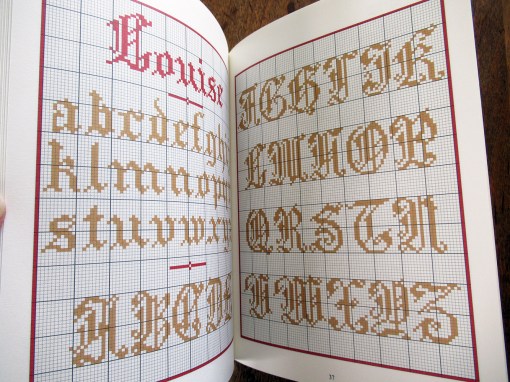 Louise
abcdefgh
klmnop
stuvwxy
ABCDE
FGHIJK
LMNOP
QRSTU
VWXYZ
37